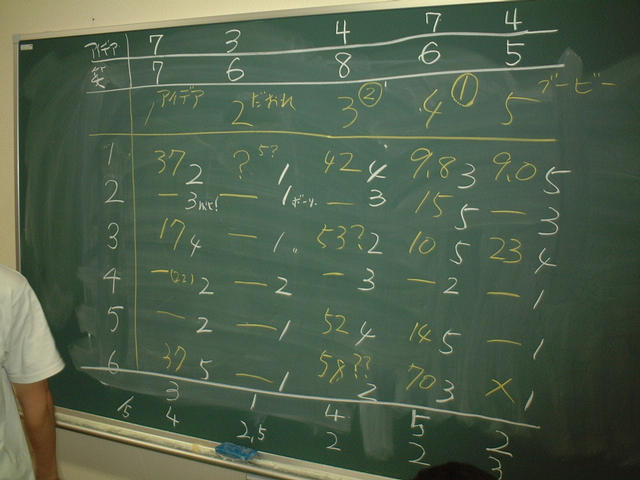 アイデア 7 3 4 7 4
笑 7 6 8 6 5
1 アイデア 2 だおれ 3 ② 4 ① 5 ブービー
1 37 2 ? 5? 1 42 4 9,8 3 9,0 5
2 — 3 — 1 — 3 15 5 — 3
3 17 4 — 1 〃 53? 2 10 5 23 4
4 — (22) 2 — 2 — 3 — 2 — 1
5 — 2 — 1 52 4 14 5 — 1
6 37 5 — 1 58?? 2 70 3 × 1
3 1 4 5 2
/5 4 2,5 2 2 3